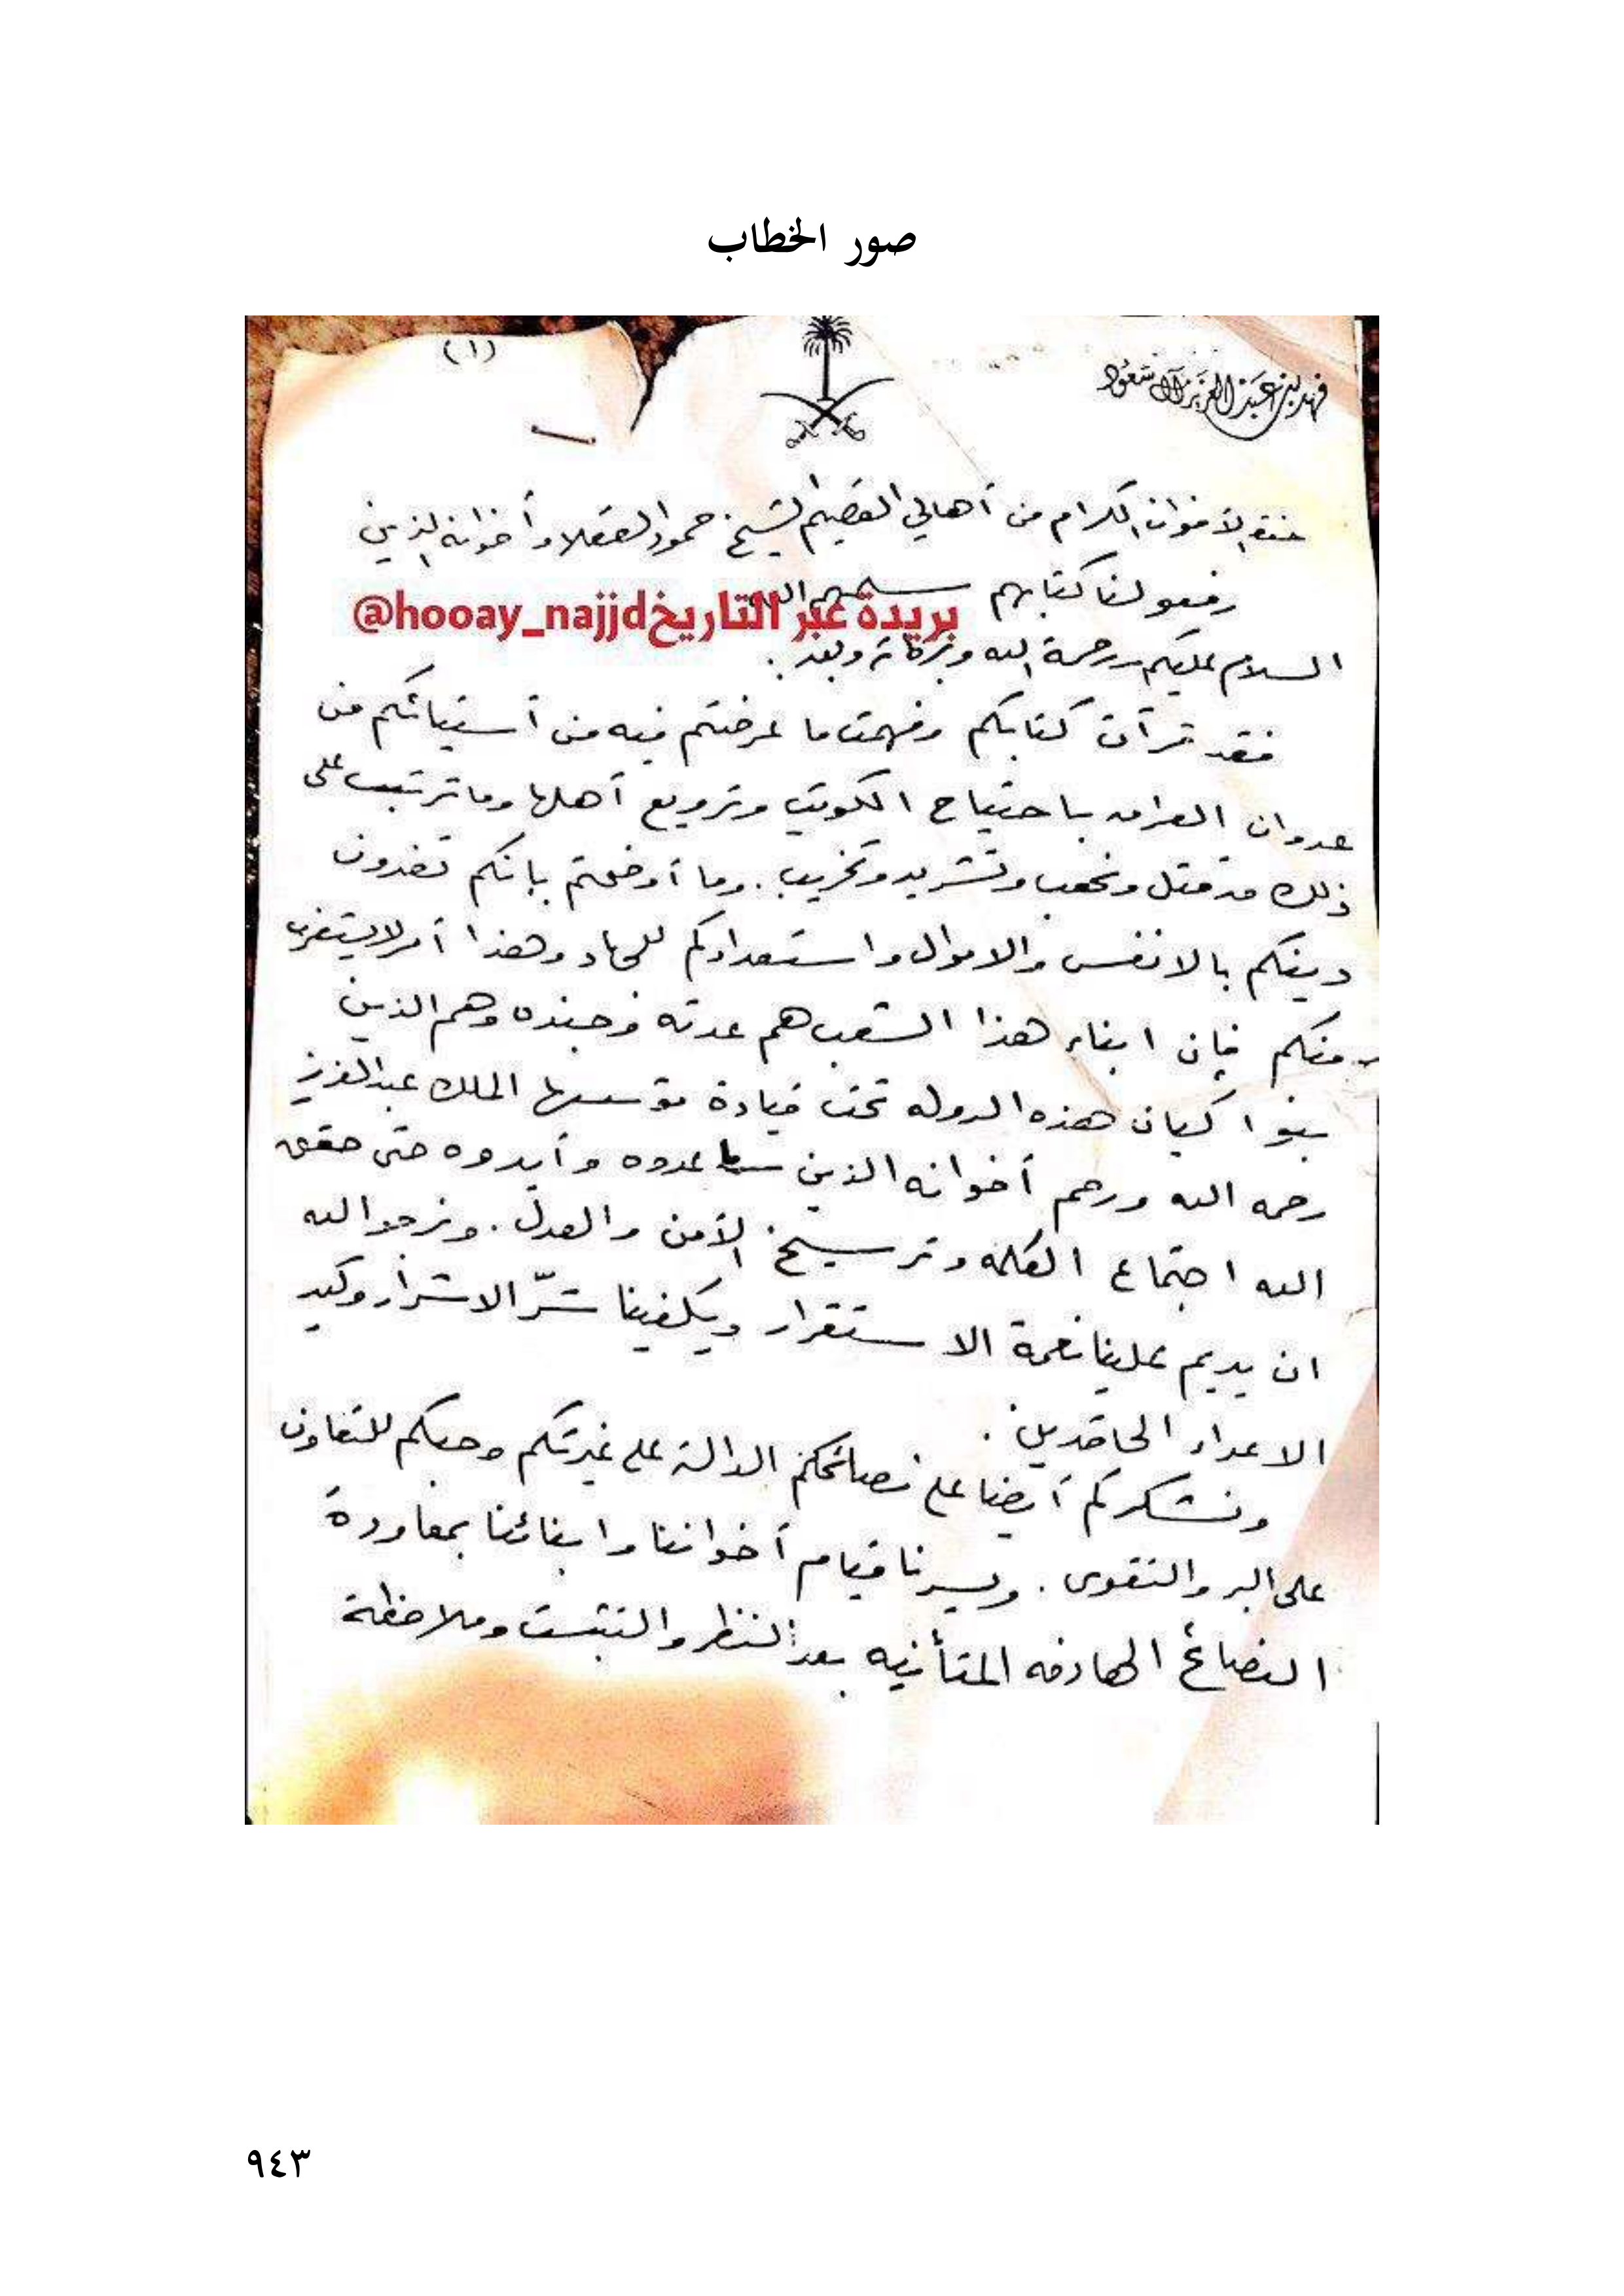 صور الخطاب
(١)
فهد بن عبد العزيز آل سعود
الأخوان الكرام من أهالي القصيم الشيخ حمود العقلا وأخوانه الذين
رفعو لنا كتابهم سلمهم الله
بريدة عبر التاريخ hooay_najjd@
السلام عليكم ورحمة الله وبركاته وبعد.
فقد قرأت كتابكم وفهمت ما عرضتم فيه من أستيائكم من
عدوان العراق باحتياح الكويت وترويع أهلها وما ترتب على
ذلك من قتل ونهب وتشريد وتخريب. وما أوضحتم بانكم تفدون
دينكم بالانفس والاموال واستعدادكم للجهاد وهذا أمر لا يستغرب
منكم فإن ابناء هذا الشعب هم عدته وجنده وهم الذين
بنوا كيان هذه الدوله تحت قيادة مؤسسها الملك عبدالعزيز
رحمه الله ورحم أخوانه الذين ساعدوه وأيدوه حتى حقق
الله اجتماع الكلمه وترسيخ الأمن والعدل. ونرجوا الله
ان يديم علينا نعمة الاستقرار ويكفينا شرّ الاشرار وكيد
الاعداء الحاقدين.
ونشكركم أيضا على نصائحكم الدالة على غيرتكم وحبكم للتعاون
على البر والتقوى. ويسرنا قيام أخواننا وابنائنا بمعاودة
النصائح الهادفه المتأنيه بعد النظر والتثبت وملاحظة
٩٤٣